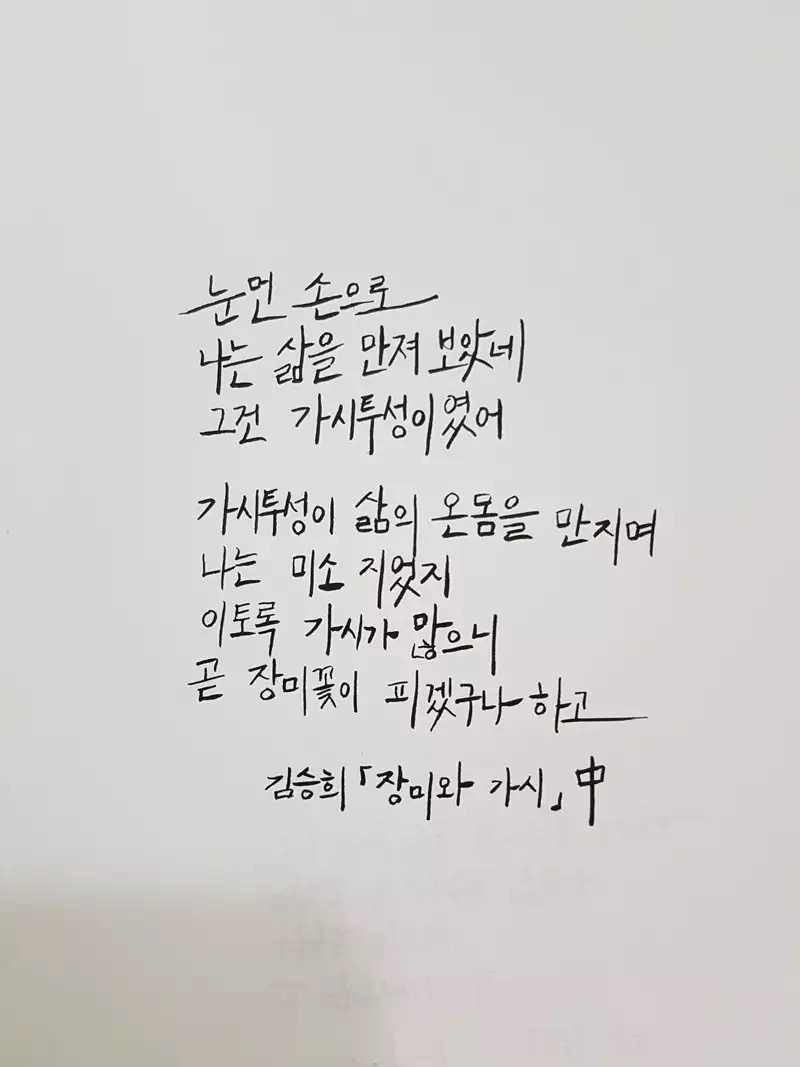 눈먼 손으로
나는 삶을 만져 보았네
그건 가시투성이였어
가시투성이 삶의 온몸을 만지며
나는 미소 지었지
이토록 가시가 많으니
곧 장미꽃이 피겠구나 하고
김승희 「장미와 가시」 中